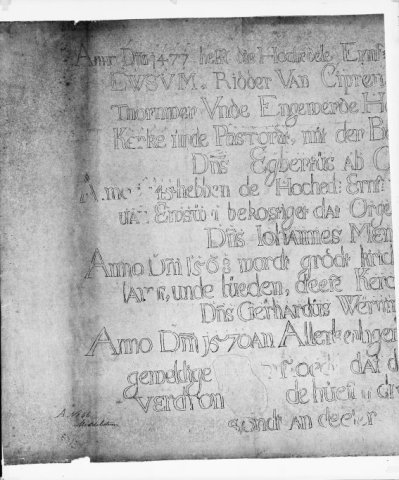 Anno Dm̄ 1477 heft die Hochedele Ernf
EWSVM. Ridder Van Cipren
Thornmer Vnde Engewerde Ho
Kercke unde Pastorat, mit der Be
Dn̄s Egbertus ab O
Anno hebben de Hoched: Ernf
van Ewsum bekostiget dat Orge
Dn̄s Iohannes Men
Anno Dm̄ 1568 wordt grodt krich
larm, unde lueden, deese Kerc
Dn̄s Gerhardus Werum
Anno Dm̄ 1570 An Allerhenligen
geweldige floedt dat d
verdron de hueren
sundt an deeser